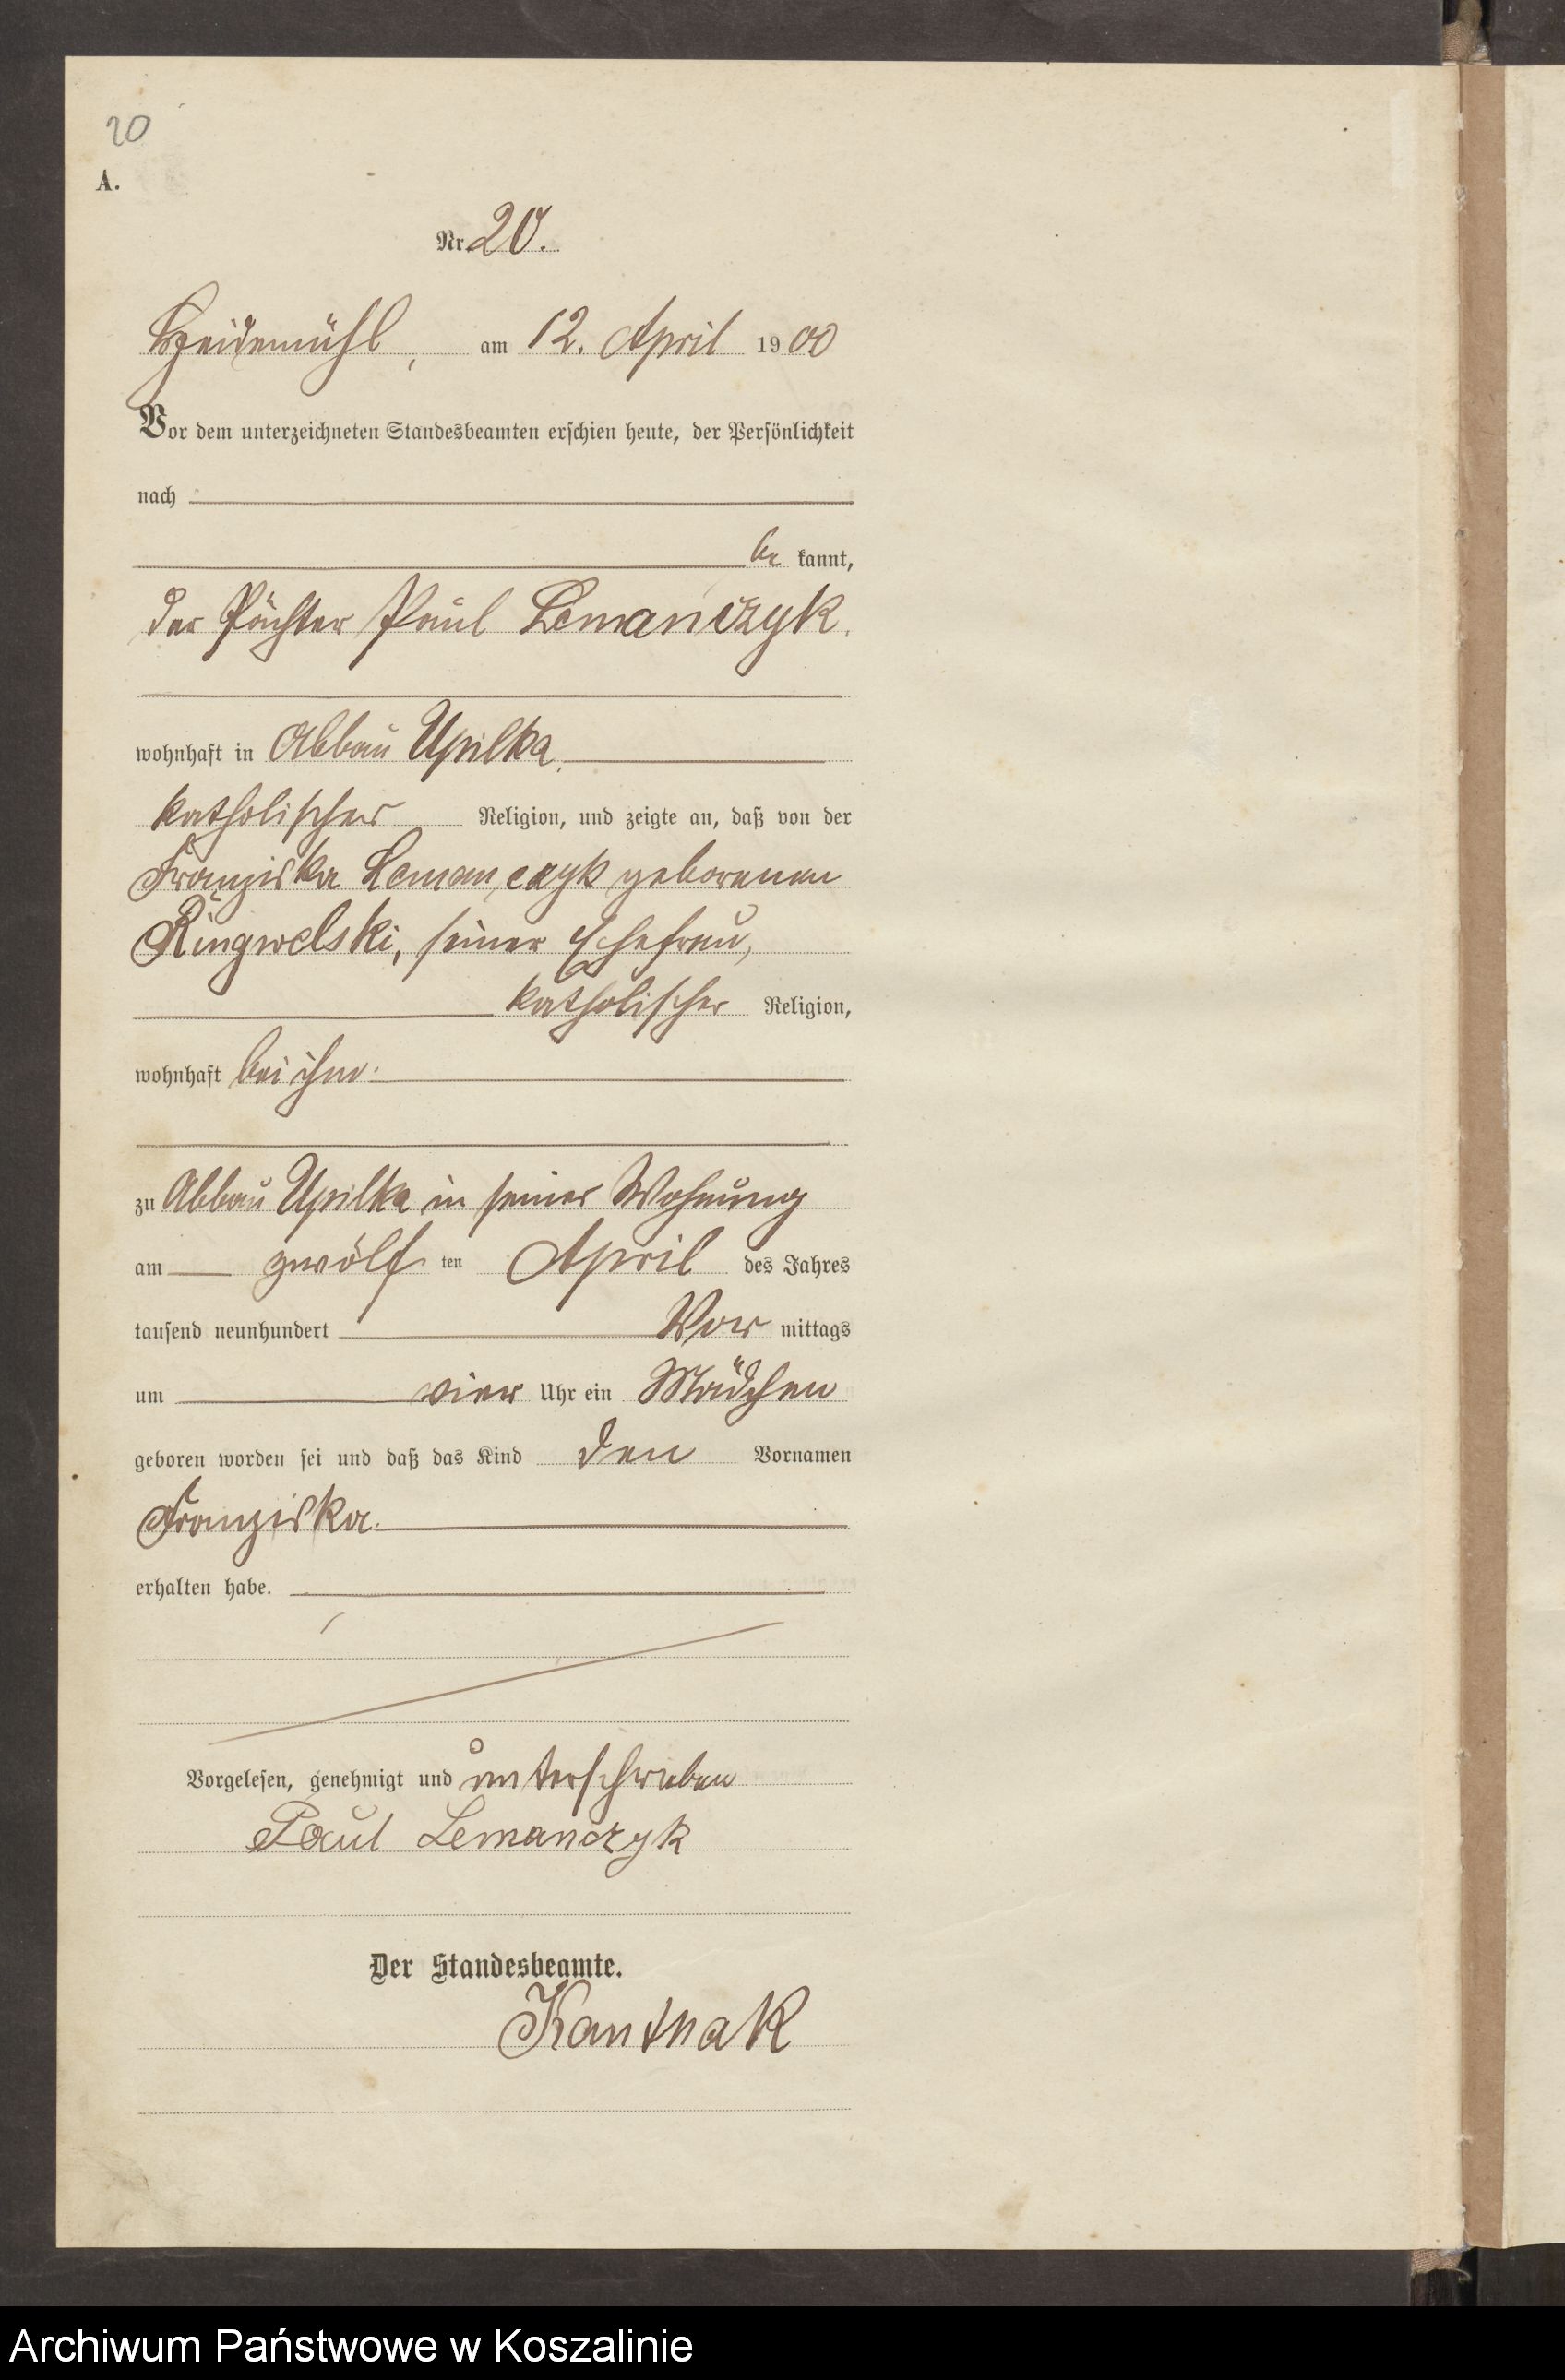 20
A.
Nr. 20.
Heidemühl, am 12. April 1900
Vor dem unterzeichneten Standesbeamten erschien heute, der Persönlichkeit
nach
be kannt,
der Pächter Paul Lemańczyk.
wohnhaft in Abbau Upilka,
katholischer Religion, und zeigte an, daß von der
Franziska Lemanczyk geborenen
Ringwelski, seiner Ehefrau,
katholischer Religion,
wohnhaft bei ihm.
zu Abbau Upilka in seiner Wohnung
am zwölf ten April des Jahres
tausend neunhundert Vor mittags
um vier Uhr ein Mädchen
geboren worden sei und daß das Kind den Vornamen
Franziska.
erhalten habe.
Vorgelesen, genehmigt und unterschrieben
Paul Lemanczyk
Der Standesbeamte.
Kanthak
Archiwum Państwowe w Koszalinie